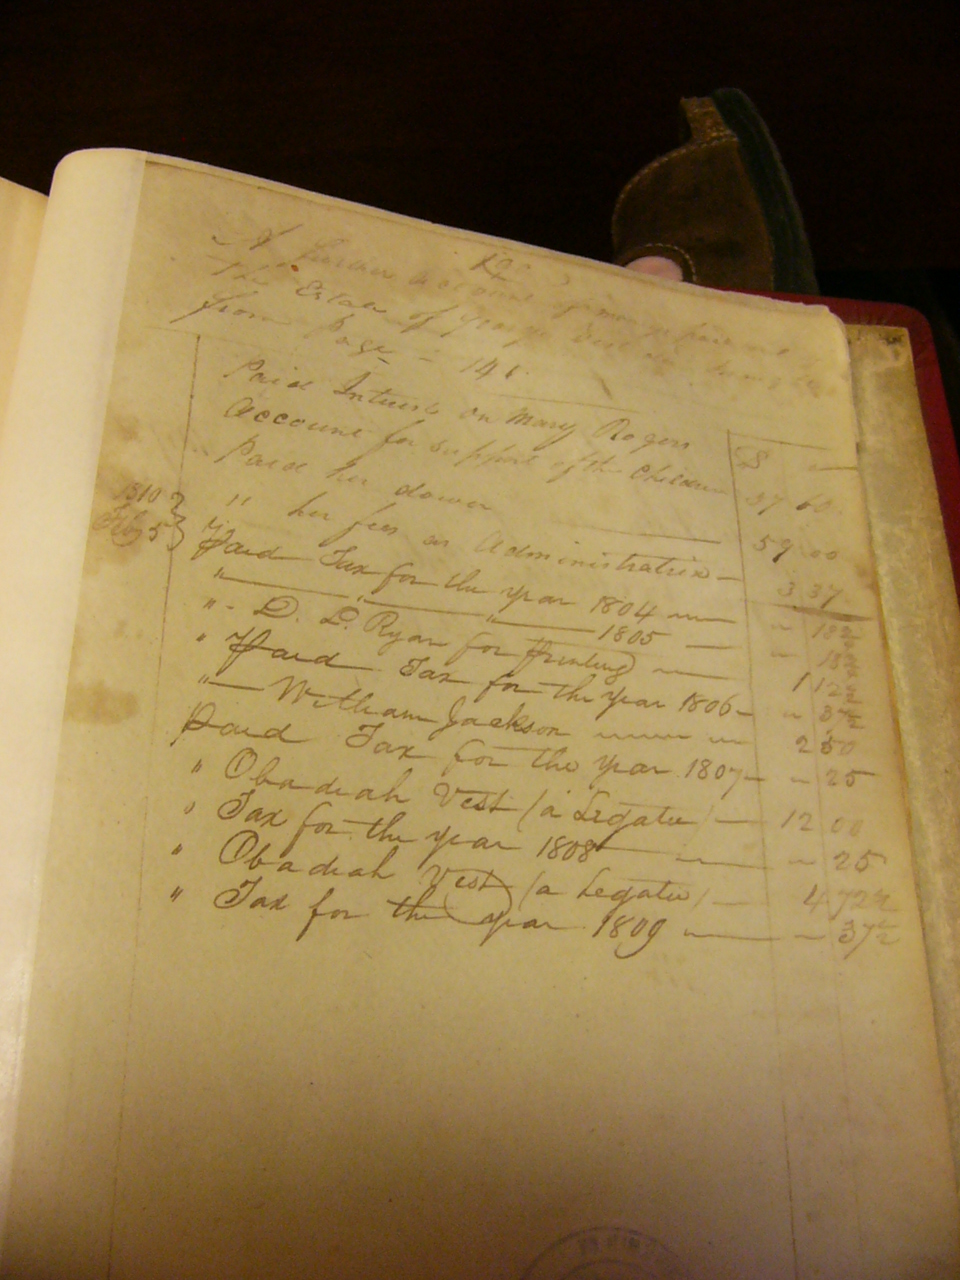 A further account of money paid
The Estate of George Vest
from Page - 141
Paid Interest on Mary Rogers
Account for support of the Children 37 60
Paid her dower 59 00
" her fees as Administratrix 3 37
1810
Feby 5
Paid Tax for the year 1804
" " " 1805
" D. D. Ryan for Printing 1
" Paid Tax for the Year 1806 " 37½
" William Jackson 2 50
Paid Tax for the year 1807 " 25
" Obadiah Vest (a Legatee) 12 00
" Tax for the year 1808 " 25
" Obadiah Vest (a Legatee) 4 72½
" Tax for the year 1809 " 37½